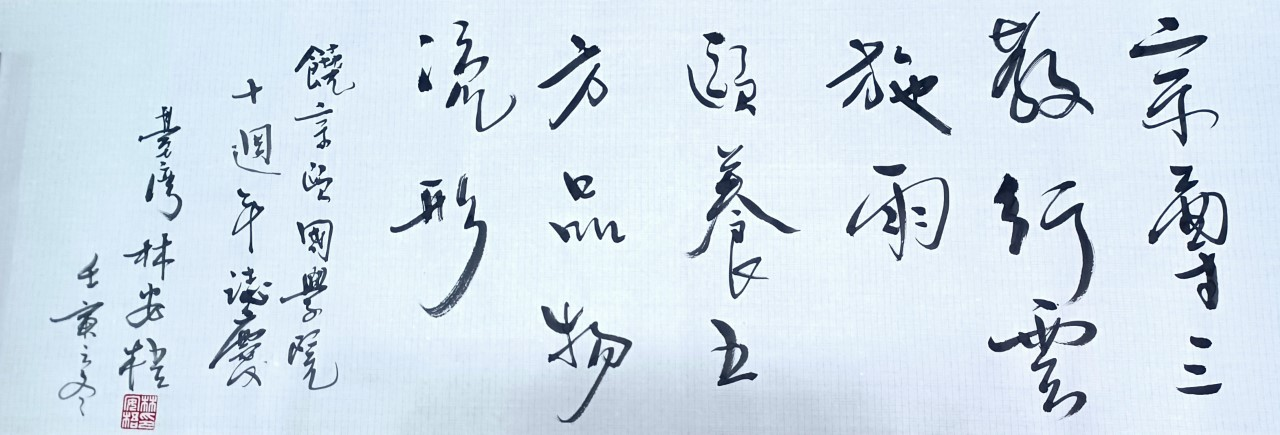 宗尊三
教行雲
施雨
頤養五
方品物
流形
饒宗頤國學院
十週年誌慶
臺灣 林安梧
壬寅之冬